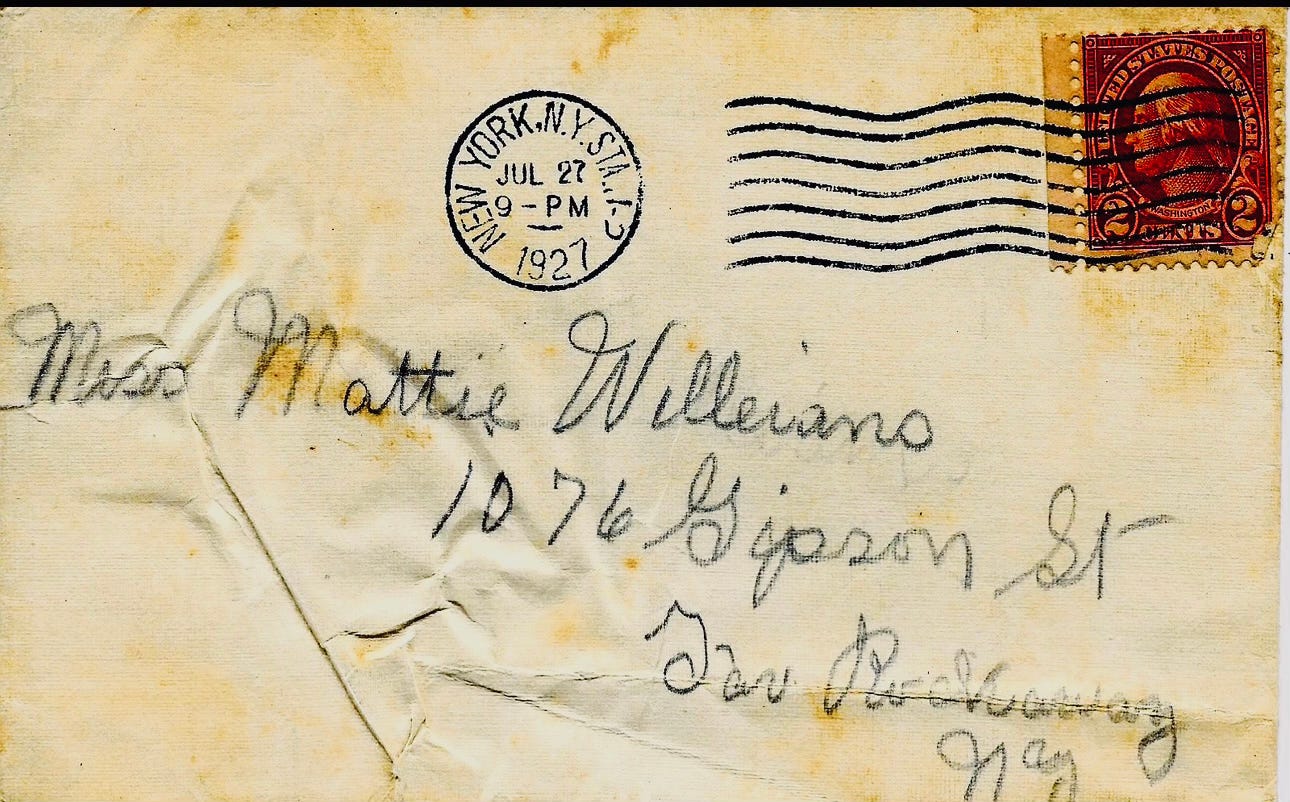 NEW YORK, N.Y. STA.
JUL 27
9 - PM
1927
UNITED STATES POSTAGE
WASHINGTON
2 CENTS 2
Miss Mattie Willeians
1076 Gipson St
Far Rockaway